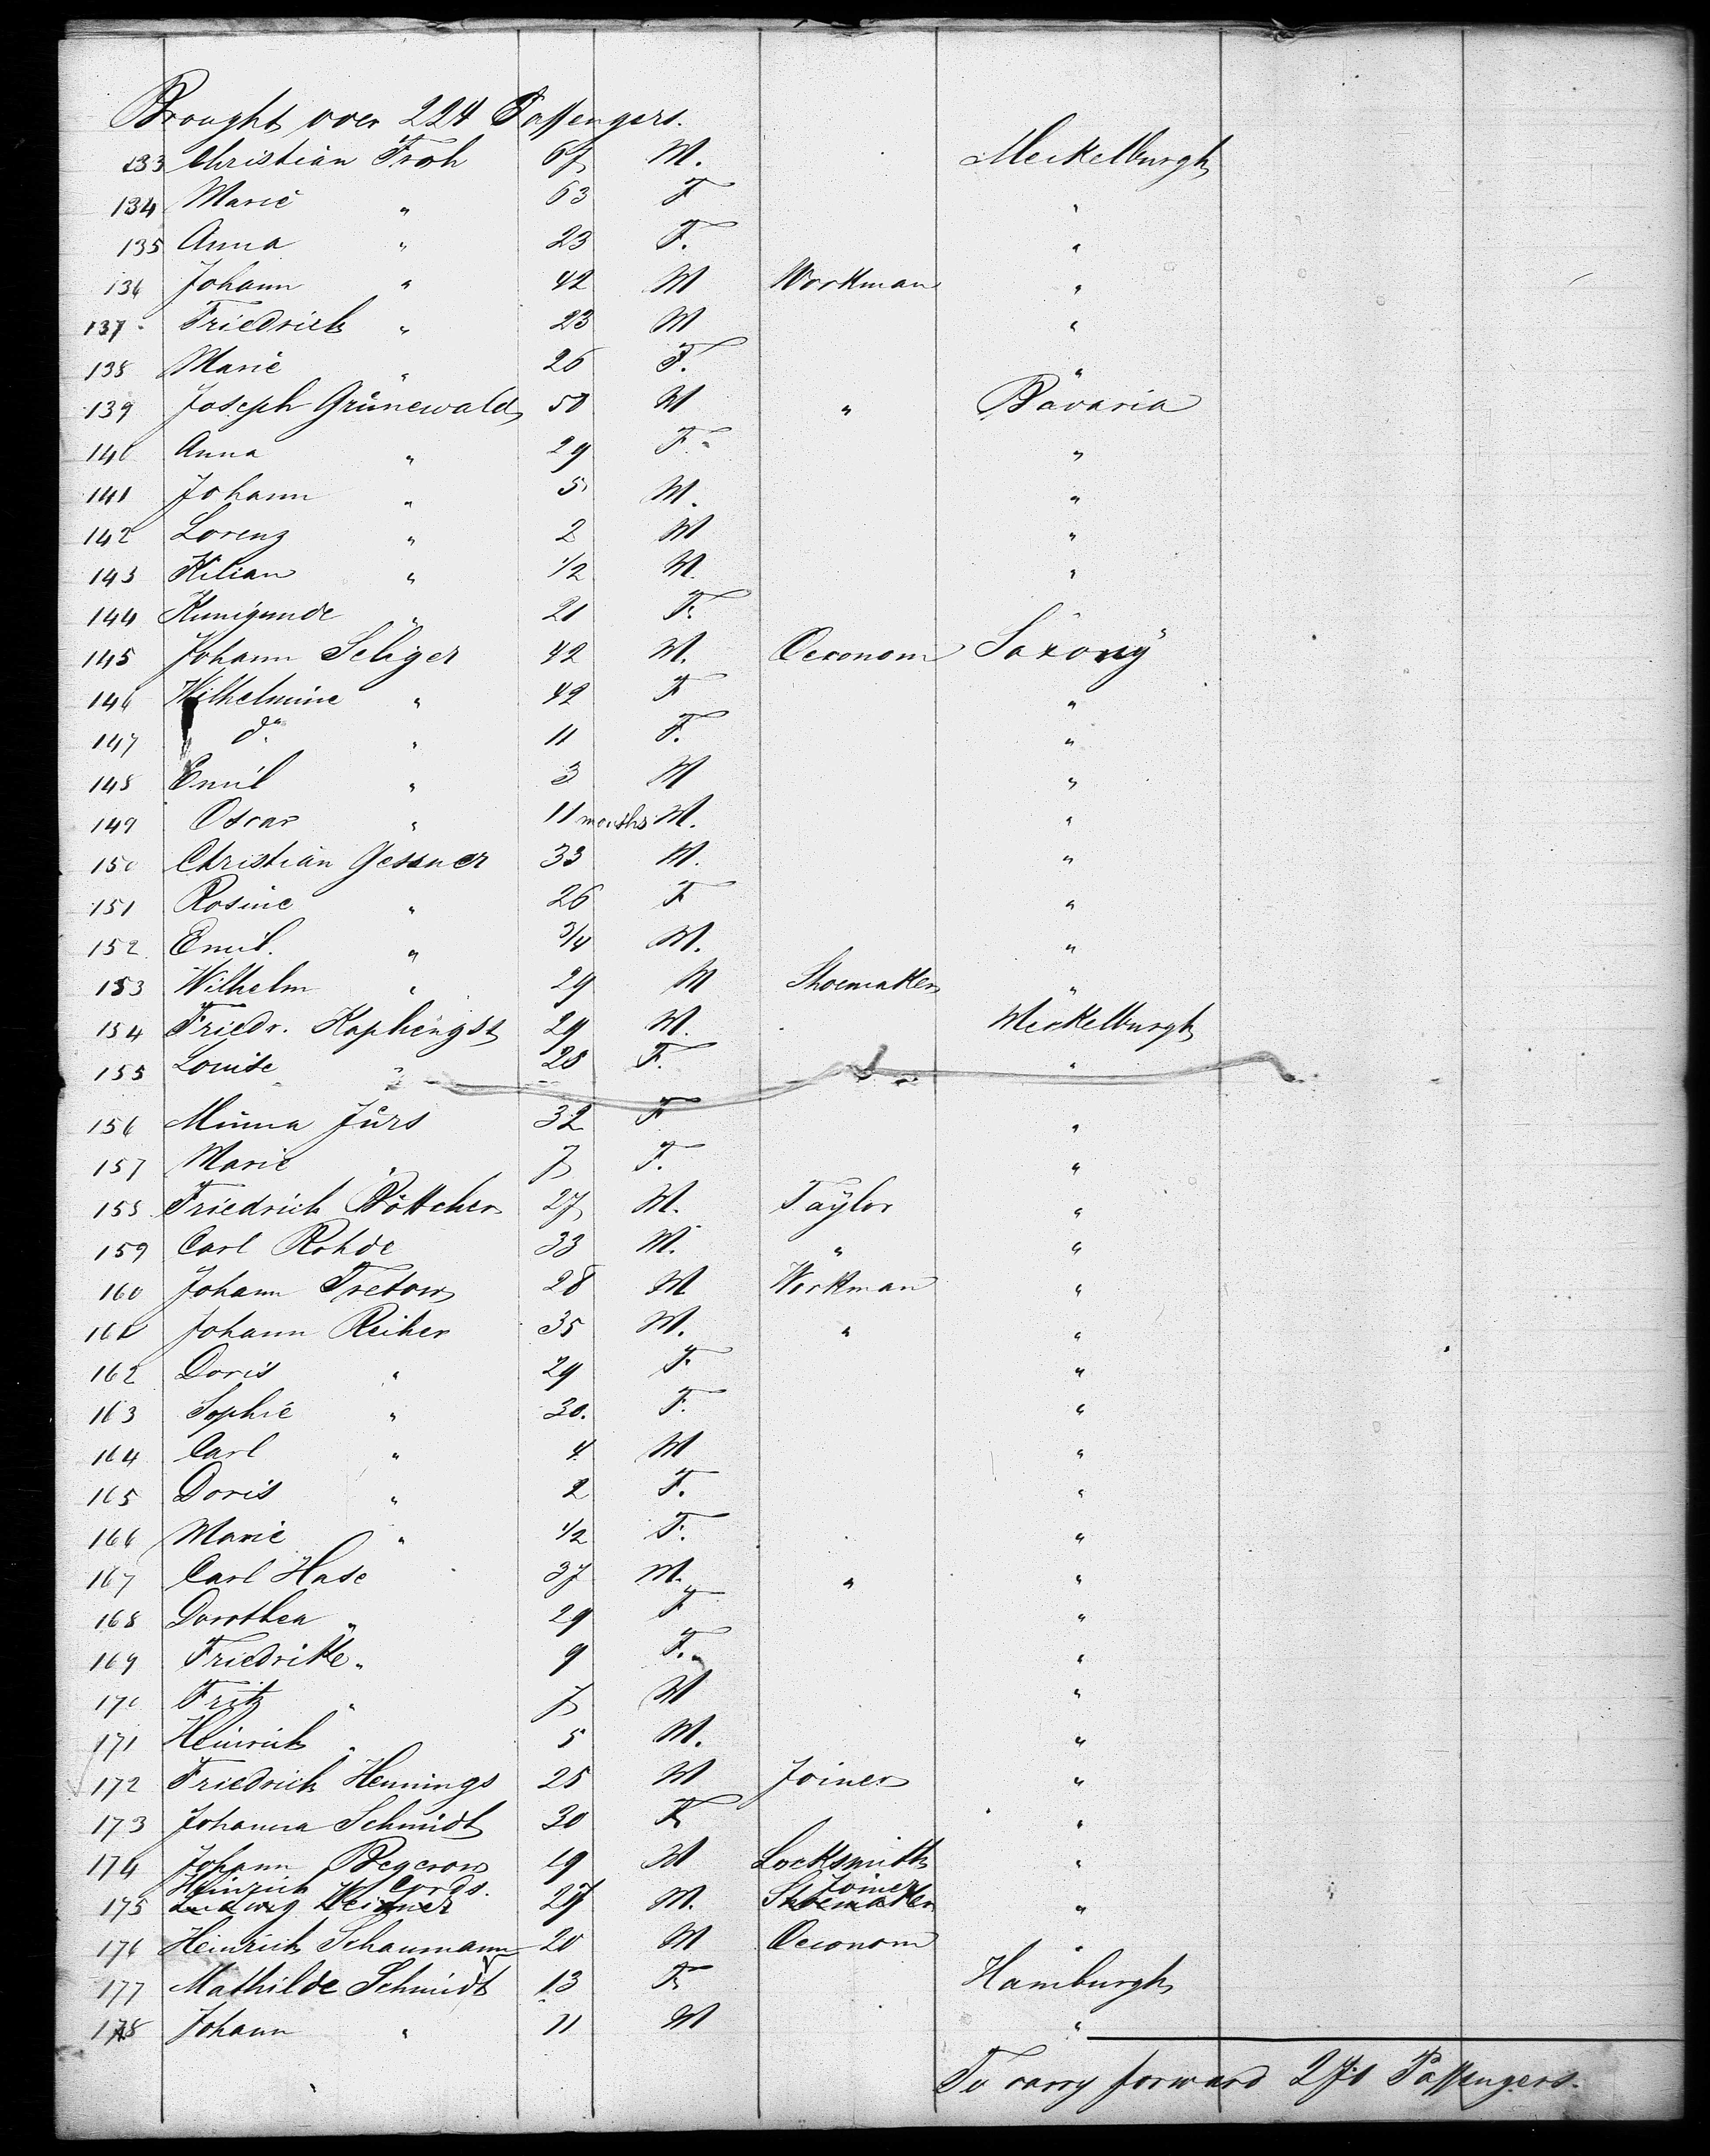 Brought over 224 Passengers.
133 Christian Froh 67 M. Meckelburgh
134 Marie " 63 F "
135 Anna " 23 F. "
136 Johann " 42 M Workman "
137 Friedrich " 23 M "
138 Marie " 26 F. "
139 Joseph Grünewald 50 M " Bavaria
140 Anna " 29 F. "
141 Johann " 5 M. "
142 Lorenz " 2 M "
143 Kilian " 1/2 M. "
144 Kunigunde " 21 F. "
145 Johann Seliger 42 M. Oeconom Saxony
146 Wilhelmine " 42 F "
147 do. " 11 F. "
148 Emil " 3 M "
149 Oscar " 11 months M. "
150 Christian Gessner 33 M. "
151 Rosine " 26 F "
152 Emil. " 3/4 M. "
153 Wilhelm " 29 M Shoemaker "
154 Friedr. Kaphengst 29 M. Meckelburgh
155 Louise " 28 F. "
156 Minna Jürs 32 F "
157 Marie " 7 F. "
158 Friedrich Böttcher 27 M. Taylor "
159 Carl Rohde 33 M. " "
160 Johann Tretow 28 M Workman "
161 Johann Reiher 35 M. " "
162 Doris " 29 F. "
163 Sophie " 30. F. "
164 Carl " 4 M "
165 Doris " 2 F. "
166 Marie " 1/2 F. "
167 Carl Hase 37 M. " "
168 Dorothea " 29 F "
169 Friedrike " 9 F. "
170 Fritz " 7 M "
171 Heinrich " 5 M. "
172 Friedrich Hennings 25 M Joiner "
173 Johanna Schmidt 30 F. "
174 Johann Begerow 19 M Locksmith "
Heinrich Cords. Joiner
175 Ludwig 27 M. Shoemaker "
176 Heinrich Schaumann 20 M Oeconom "
177 Mathilde Schmidt 13 F. Hamburgh
178 Johann " 11 M "
To carry forward 270 Passengers.